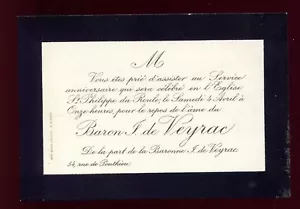 M
Vous êtes prié d'assister au Service
anniversaire qui sera célébré en l'Eglise
St Philippe du Roule, le Samedi 4 Avril à
Onze heures, pour le repos de l'âme du
Baron J. de Veyrac
De la part de la Baronne J. de Veyrac
54, rue de Ponthieu